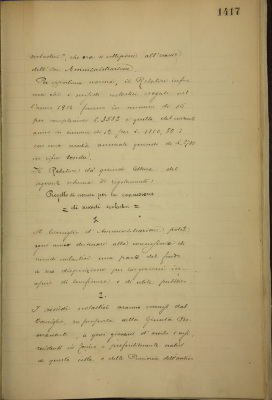 1417
scolastici", che ora si sottopone all'esame
della On. Amministrazione.
Per opportuna norma, il Relatore infor-
ma che i sussidi scolastici erogati nel-
l'anno 1914 furono in numero di 16
per complessive L. 2582 e quelli
anno in numero di 12 per L. 1110,
con una media annuale quindi di L.
in cifra tonda.
Il Relatore dà quindi lettura del
seguente schema di regolamento:
Progetto di norme per la concessione
di sussidi scolastici
1.
Il Consiglio d'Amministrazione potrà
ogni anno destinare alla concessione di
sussidi scolastici una parte del fondo
a sua disposizione per erogazioni in
opere di beneficenza e di utilità pubblica.
2.
I sussidi scolastici saranno concessi dal
Consiglio, su proposta della Giunta
a quei giovani d'ambo i sessi,
residenti in Torino e preferibilmente nativi
di questa città o della Provincia